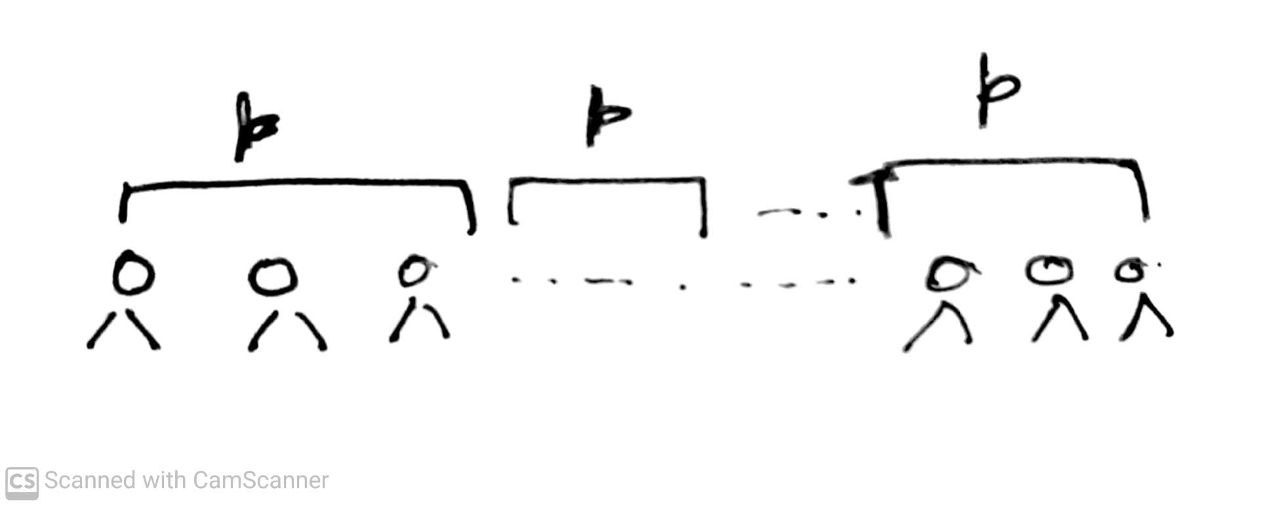 p p p
CS Scanned with CamScanner